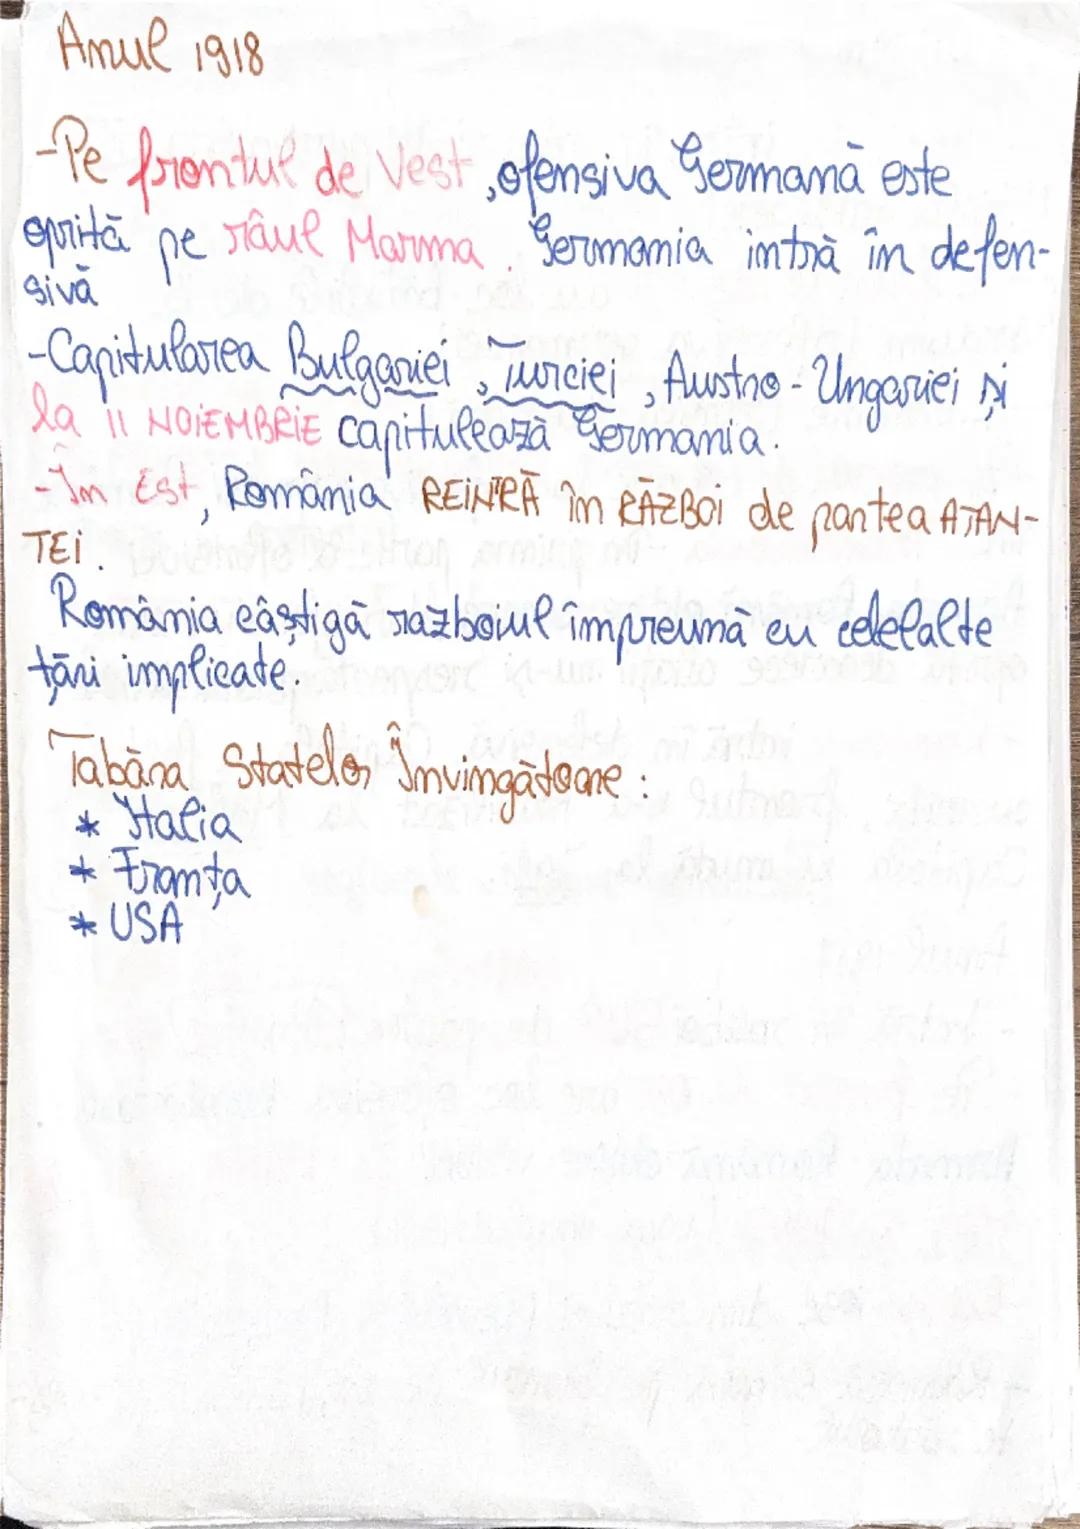 Anul 1918
-Pe frontul de Vest, ofensiva Germană este
oprită pe râul Marma. Germania intră în defen-
sivă
-Capitularea Bulgariei, Turciei, Austro-Ungariei și
la 11 NOIEMBRIE capitulează Germania.
-În Est, România REINTRĂ în RĂZBOI de partea ATAN-
TEI.
România câștigă războiul împreună cu celelalte
țări implicate.
Tabăra Statelor Învingătoare:
* Italia
* Franța
* USA